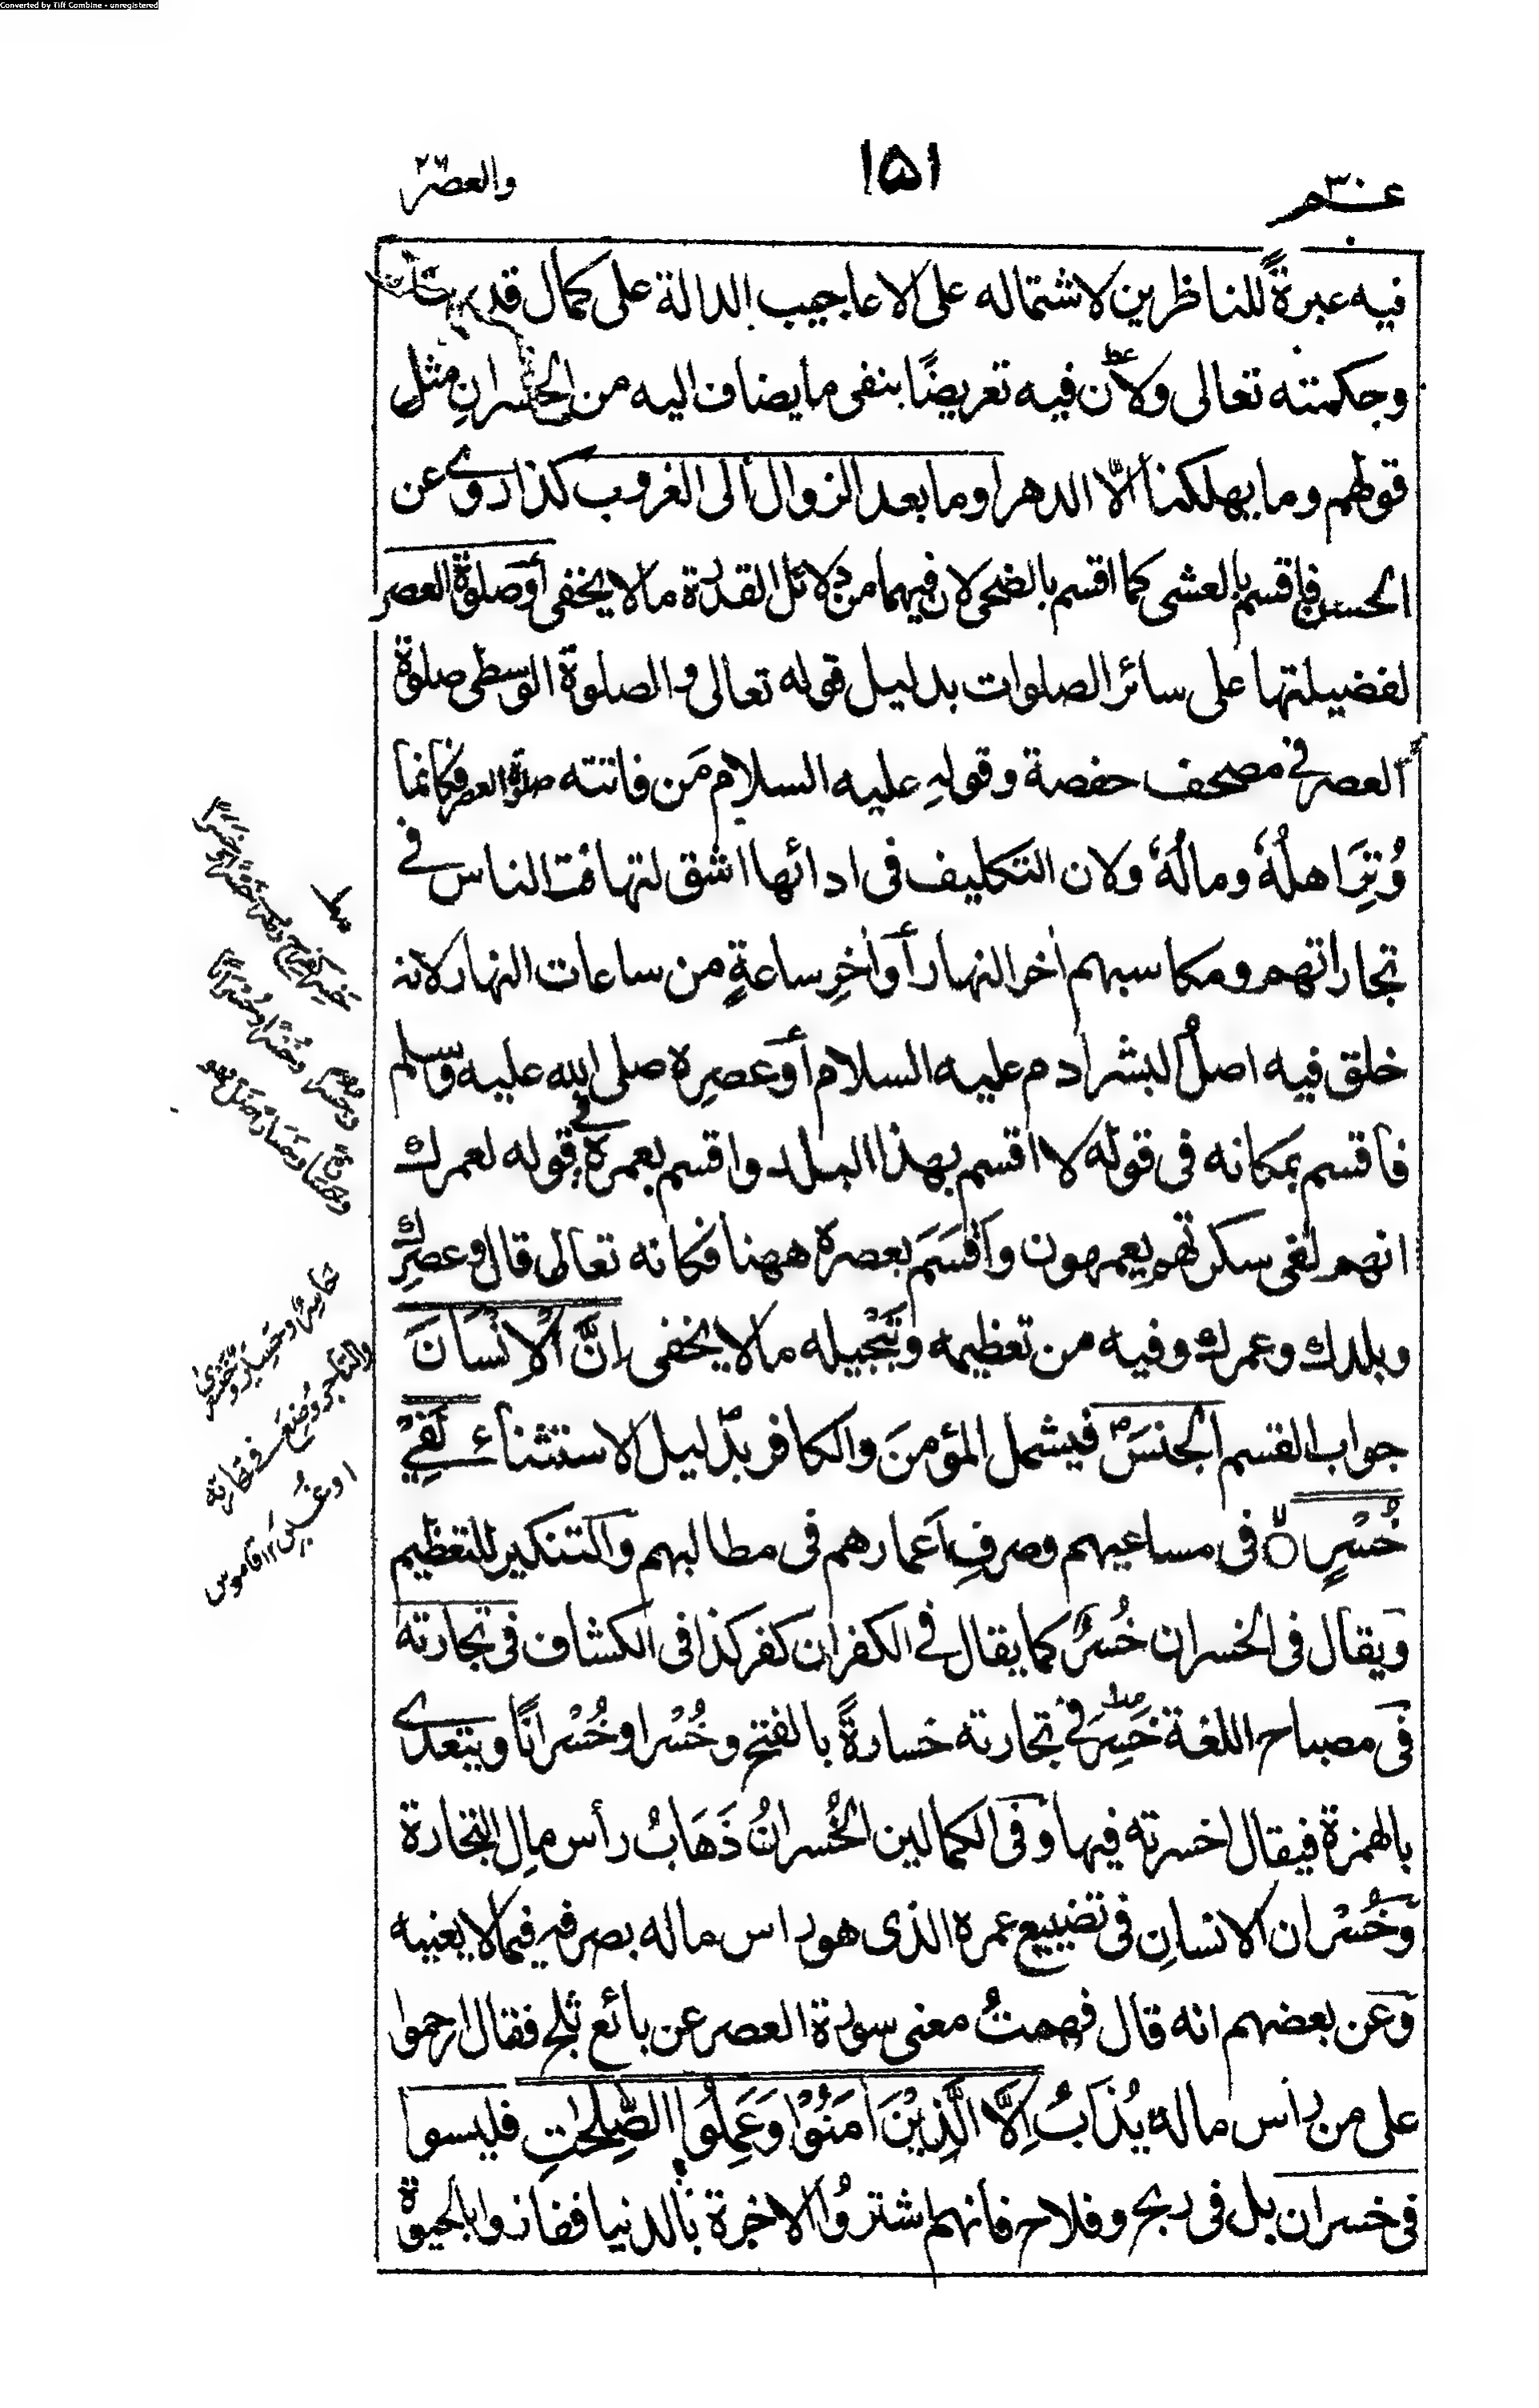 Converted by Tiff Combine - unregistered
عـم ٣٠
١٥١
والعصر
فيه عبرةً للناظرين لاشتماله على الاعاجيب الدالة على كمال قدرته
وحكمته تعالى ولان فيه تعريضًا بنفى ما يضاف اليه من الخسرانِ مثل
قولهم وما يهلكنا الا الدهر او ما بعد الزوال الى الغروب كذا روى عن
الحسن فاقسم بالعشى كما اقسم بالضحى لان فيهما من دلائل القدرة ما لا يخفى أو صلوة العصر
لفضيلتها على سائر الصلوات بدليل قوله تعالى والصلوة الوسطى صلوة
العصر فى مصحف حفصة وقولِه عليه السلام مَن فاتته صلوة العصر فكانما
وُتِرَ اهلُهٗ ومالُهٗ ولان التكليف فى ادائها اشق لتهافت الناس فى
تجاراتهم ومكاسبهم اٰخر النهار أو اٰخِرِ ساعةٍ من ساعات النهار لانه
خلق فيه اصلُ البشر اٰدم عليه السلام أو عصرِه صلى الله عليه وسلم
فاقسم بمكانه فى قوله لا اقسم بهذا البلد واقسم بعمره فى قوله لعمرك
انهم لفى سكرتهم يعمهون واَقسَمَ بعصره ههنا فكانه تعالى قال وعصرِك
وبلدك وعمرك وفيه من تعظيمه وتبجيله ما لا يخفى اِنَّ الْاِنْسَانَ
جواب القسم الجنسَ فيشمل المؤمنَ والكافر بدليل الاستثناء لَفِىْ
خُسْرٍ ۙ فى مساعيهم وصرفِ اَعمارهم فى مطالبهم والتنكير للتعظيم
ويقال فى الخسران خُسْرٌ كما يقال فى الكفران كفر كذا فى الكشاف فى تجارته
فى مصباح اللغة خَسِرَ فى تجارته خسارةً بالفتح وخُسْرا وخُسْرانًا ويتعدى
بالهمزة فيقال اخسرته فيها وفى الكمالين الخُسرانُ ذَهَابُ رأس مالِ التجارة
وخُسْران الانسانِ فى تضييع عمره الذى هو راس ماله بصرفه فيما لا يعنيه
وعن بعضهم انه قال فهمتُ معنى سورة العصر عن بائع ثلج فقال ارحموا
على من راس ماله يُذَابُ اِلَّا الَّذِيْنَ اٰمَنُوْا وَعَمِلُوا الصّٰلِحٰتِ فليسوا
فى خسران بل فى ربح وفلاح فانهم اشتروُا الاٰخرة بالدنيا ففازوا بالحيوة
او غُبِنَ ١٢ قاموس